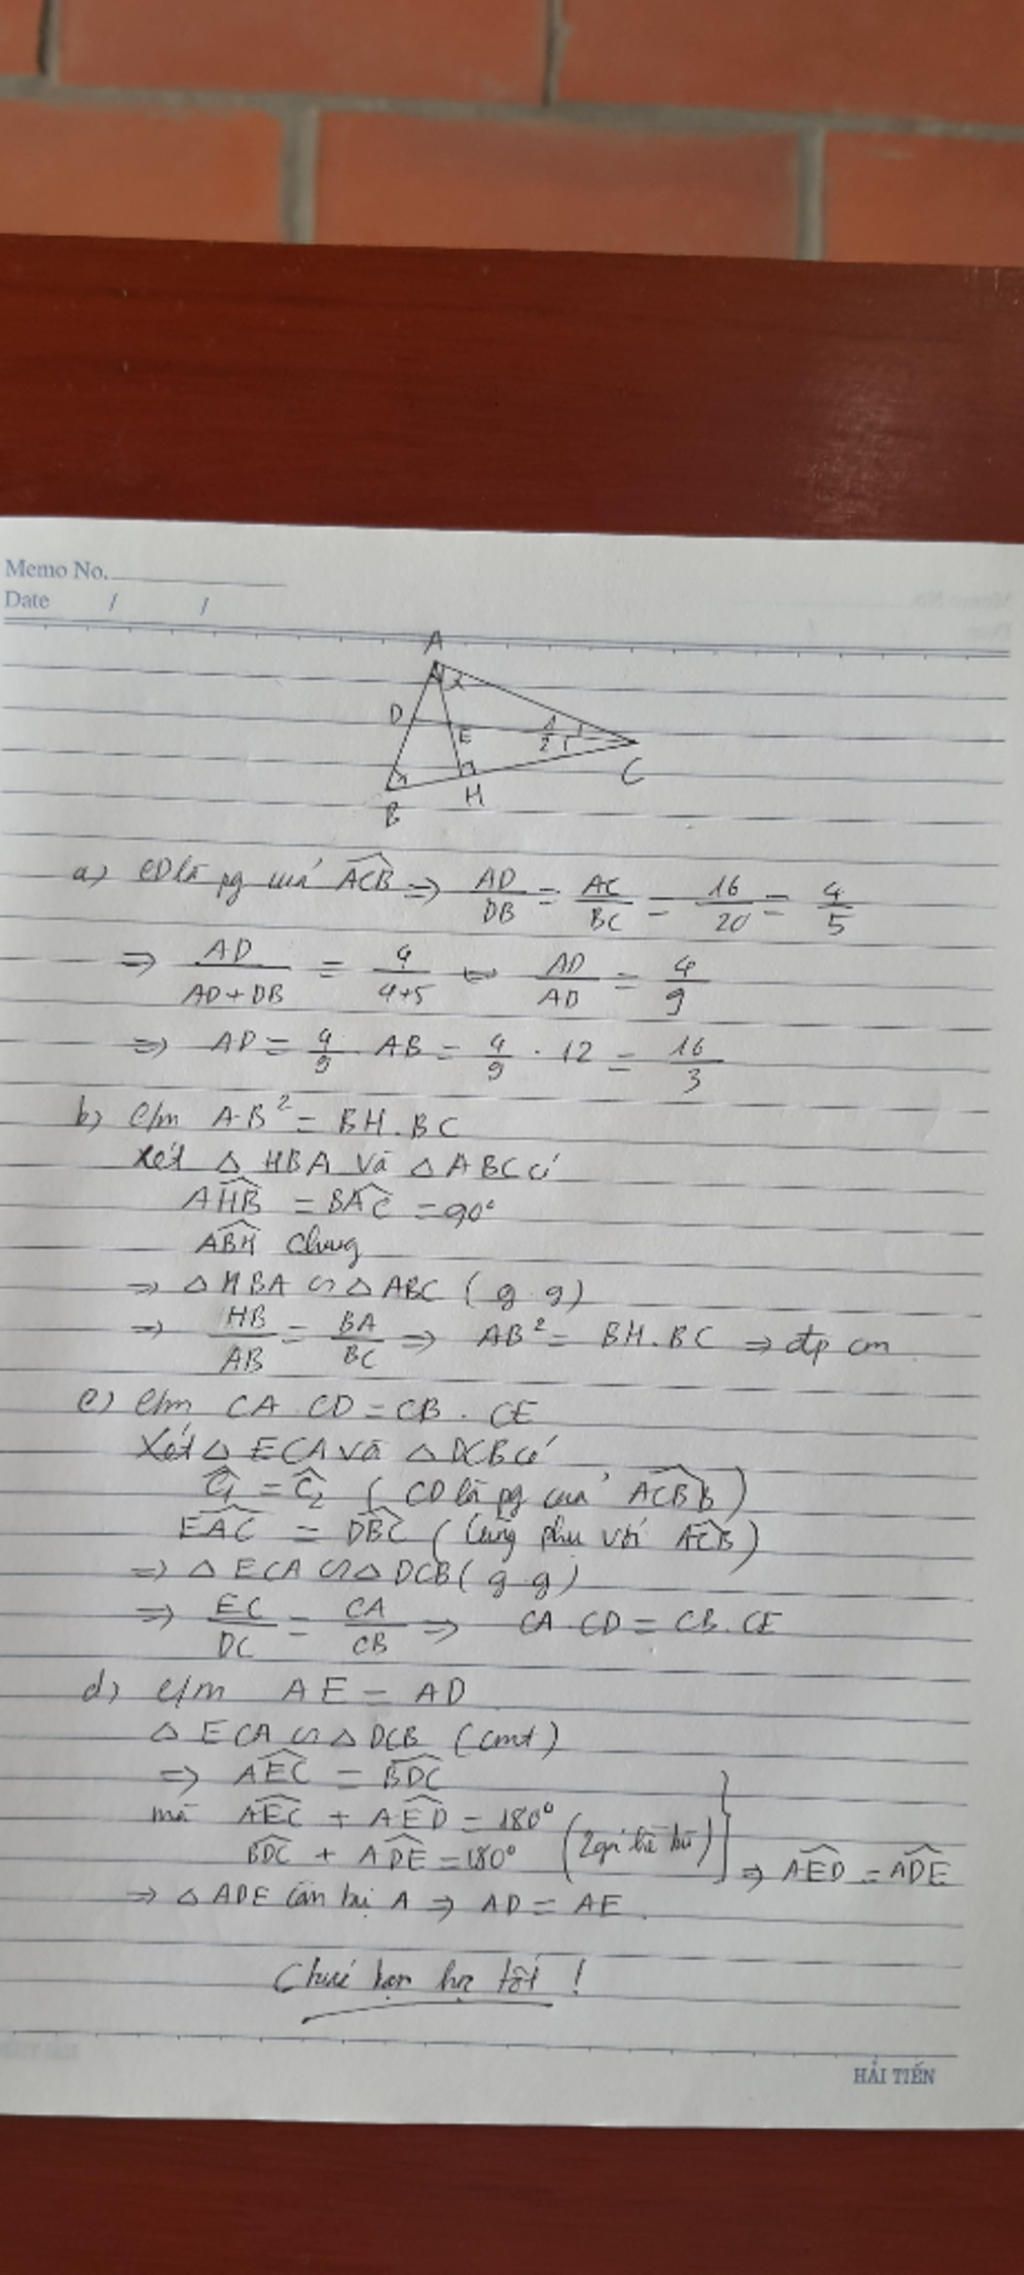 Memo No.
Date / /
A
2
D
E
1
2
C
B
H
a) CD là pg của ACB => AD/DB = AC/BC = 16/20 = 4/5
=> AD/AD+DB = 4/4+5 <=> AD/AD = 4/9
=> AD = 4/9 . AB = 4/9 . 12 = 16/3
b) C/m AB² = BH.BC
Xét △ HBA và △ ABC có
AHB = BAC = 90°
ABH chung
=> △ HBA ∽ △ ABC ( g g )
=> HB/AB = BA/BC => AB² = BH.BC => đp cm
c) C/m CA CD = CB . CE
Xét △ ECA và △ DCB có
C1 = C2 ( CD là pg của ACB )
EAC = DBC ( Cùng phụ với ACB )
=> △ ECA ∽ △ DCB ( g g )
=> EC/DC = CA/CB => CA CD = CB. CE
d) c/m AE = AD
△ ECA ∽ △ DCB (cmt)
=> AEC = BDC
mà AEC + AED = 180°
BDC + ADE = 180° (2 góc kề bù) } => AED = ADE
=> △ ADE cân tại A => AD = AE.
Chúc bạn học tốt !
HẢI TIẾN